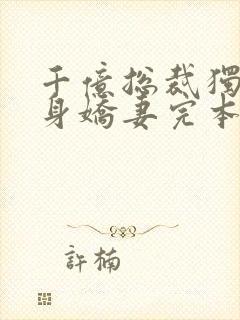 千億總裁獨
身嬌妻完本
許楠